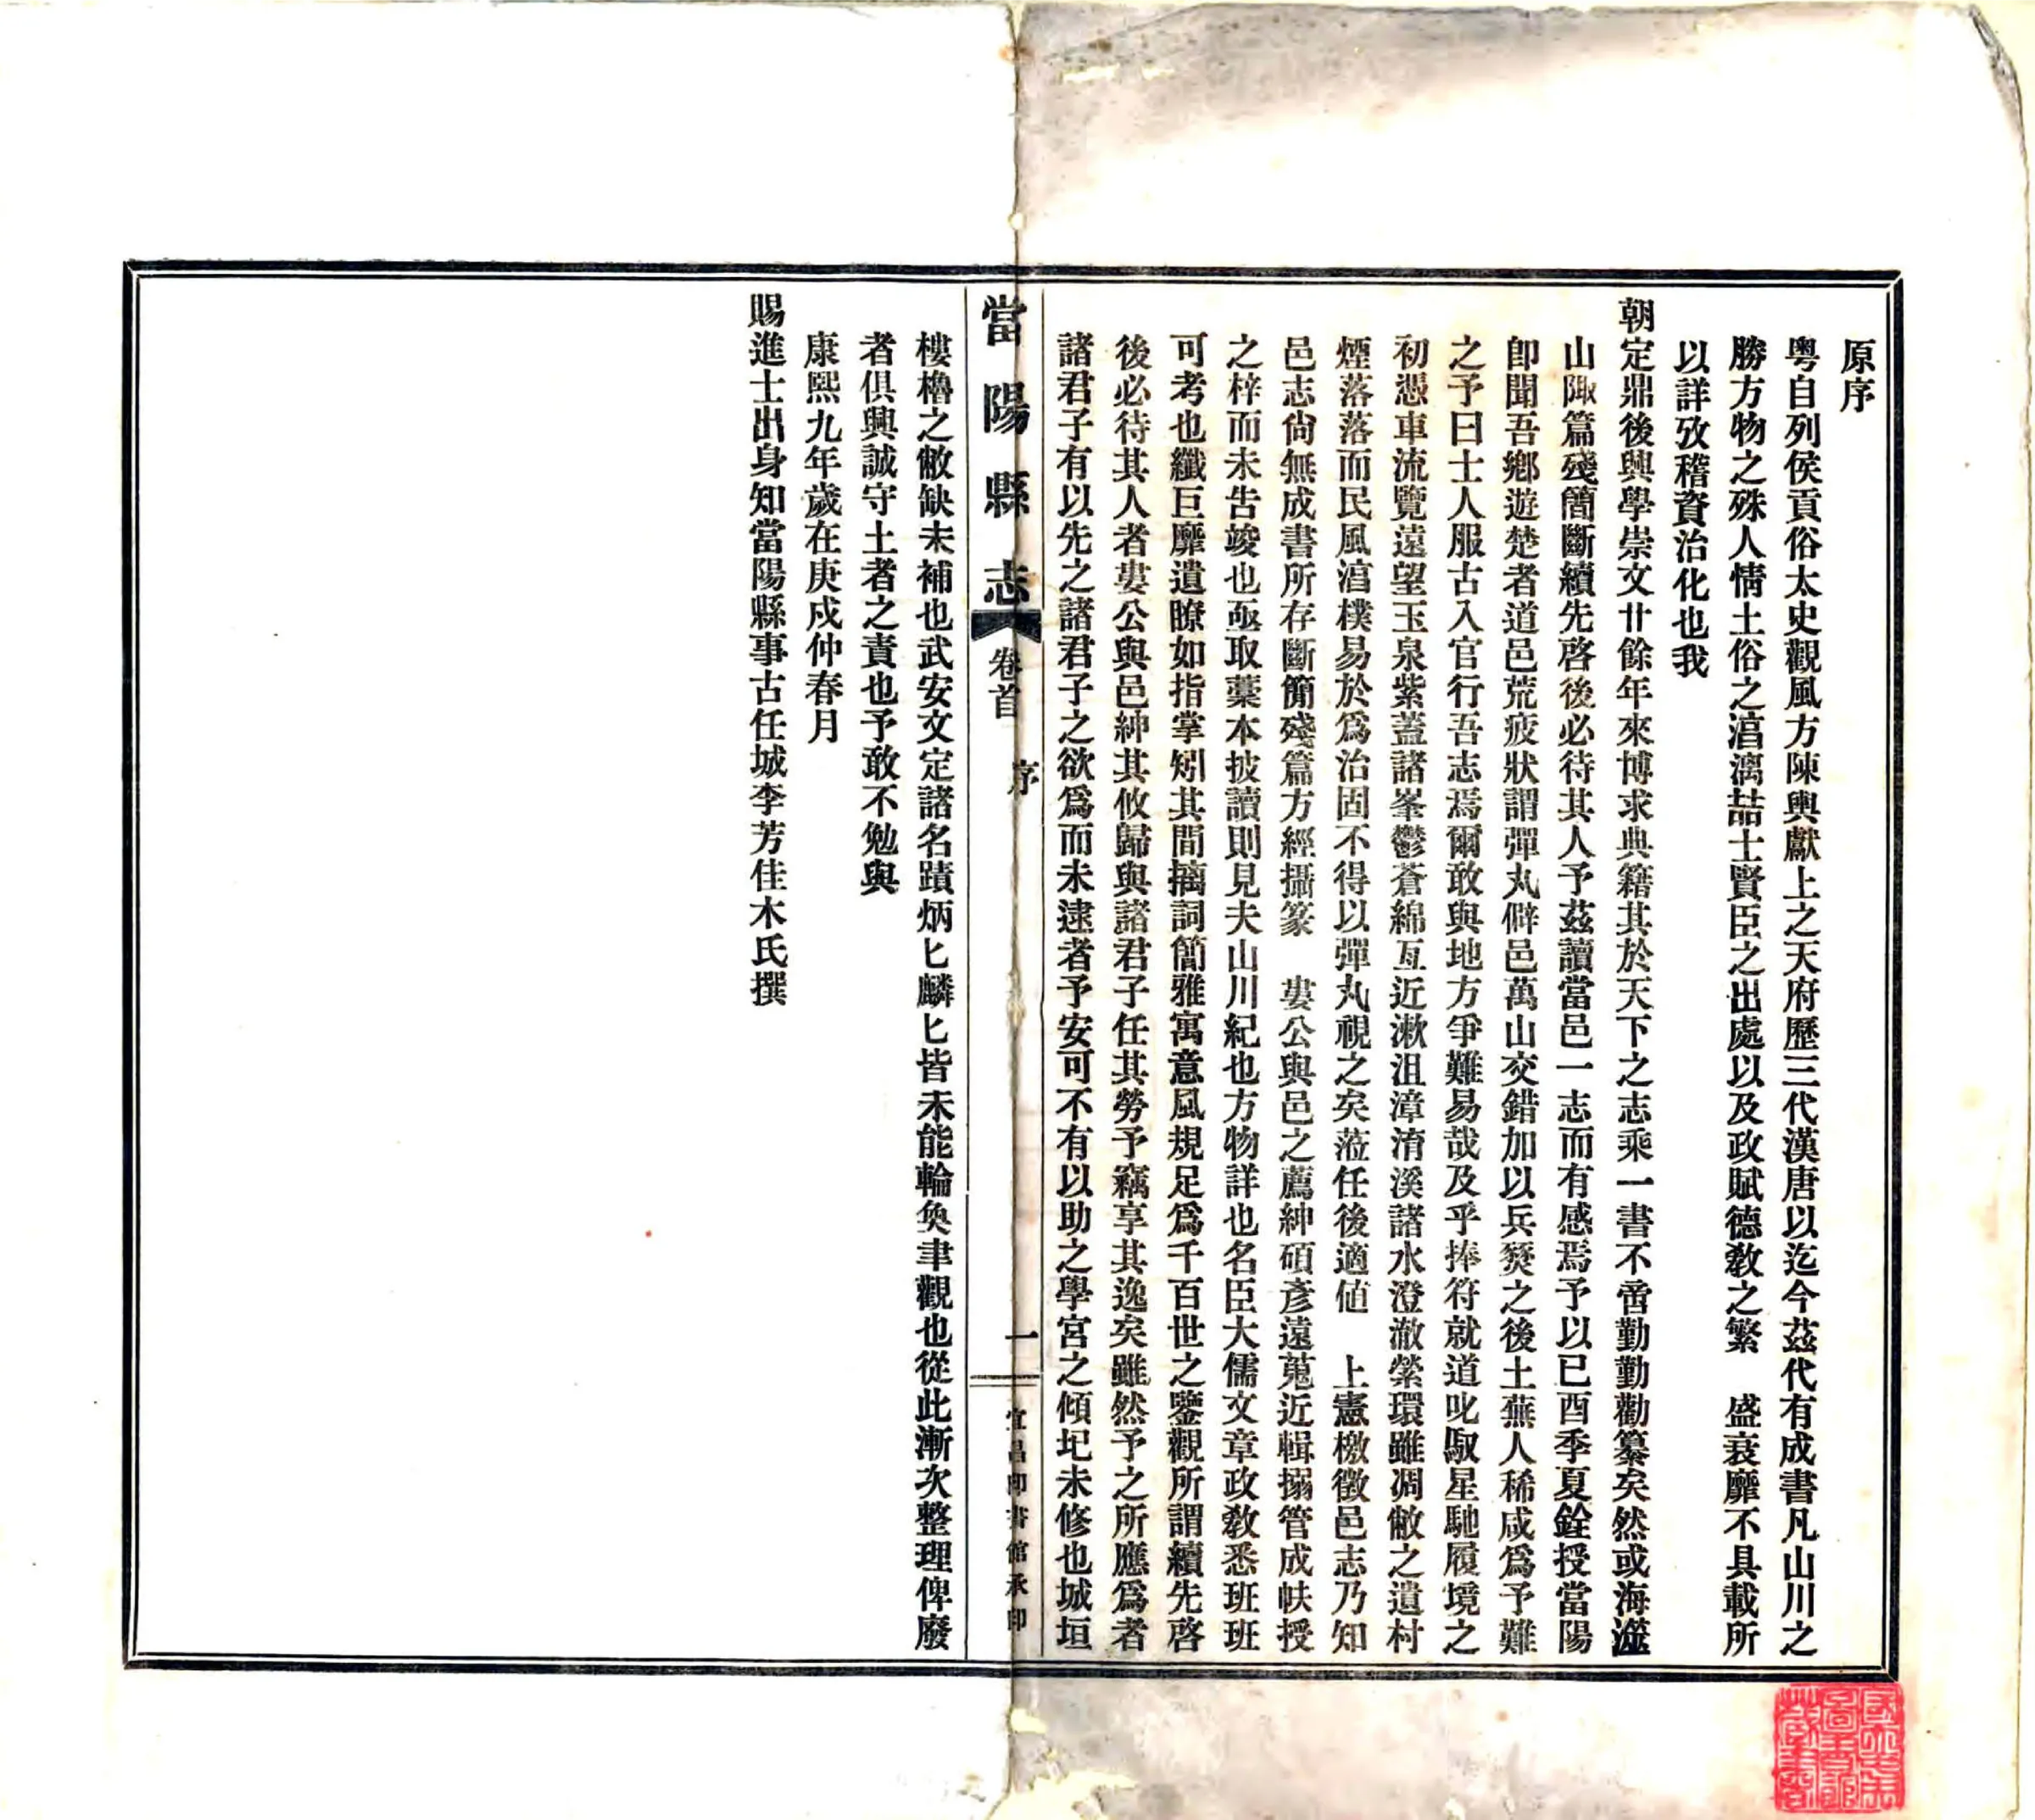 原序
粵自列侯貢俗太史觀風方陳輿獻上之天府歷三代漢唐以迄今茲代有成書凡山川之
勝方物之殊人情土俗之淳漓喆士賢臣之出處以及政賦德教之繁　盛衰靡不具載所
以詳攷稽資治化也我
朝定鼎後興學崇文廿餘年來博求典籍其於天下之志乘一書不啻勤勤勸纂矣然或海澨
山陬篇殘簡斷續先啓後必待其人予茲讀當邑一志而有感焉予以已酉季夏銓授當陽
卽聞吾鄉遊楚者道邑荒疲狀謂彈丸僻邑萬山交錯加以兵燹之後土蕪人稀咸爲予難
之予曰士人服古入官行吾志焉爾敢與地方爭難易哉及乎捧符就道叱馭星馳履境之
初憑車流覽遠望玉泉紫蓋諸峯鬱蒼綿亙近漱沮漳淯溪諸水澄澈縈環雖凋敝之遺村
煙落落而民風淳樸易於爲治固不得以彈丸視之矣蒞任後適値　上憲檄徵邑志乃知
邑志尙無成書所存斷簡殘篇方經攝篆　婁公與邑之薦紳碩彥遠蒐近輯搦管成帙授
之梓而未告竣也亟取藁本披讀則見夫山川紀也方物詳也名臣大儒文章政教悉班班
可考也纖巨靡遺瞭如指掌矧其間摛詞簡雅寓意風規足爲千百世之鑒觀所謂續先啓
後必待其人者婁公與邑紳其攸歸與諸君子任其勞予竊享其逸矣雖然予之所應爲者
諸君子有以先之諸君子之欲爲而未逮者予安可不有以助之學宮之傾圮未修也城垣
當陽縣志
卷首
序
一
宜昌印書館承印
樓櫓之敝缺未補也武安文定諸名蹟炳匕麟匕皆未能輪奐聿觀也從此漸次整理俾廢
者俱興誠守土者之責也予敢不勉與
康熙九年歲在庚戌仲春月
賜進士出身知當陽縣事古任城李芳佳木氏撰